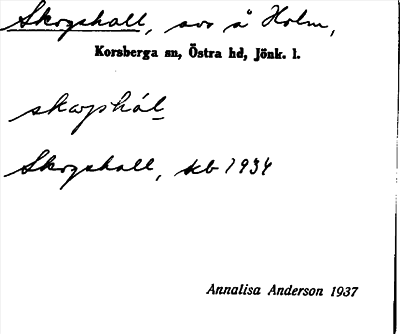 Skogshall, avs å Holm,
Korsberga sn, Östra hd, Jönk. l.
skogshál
Skogshall, kb 1934
Annalisa Anderson 1937